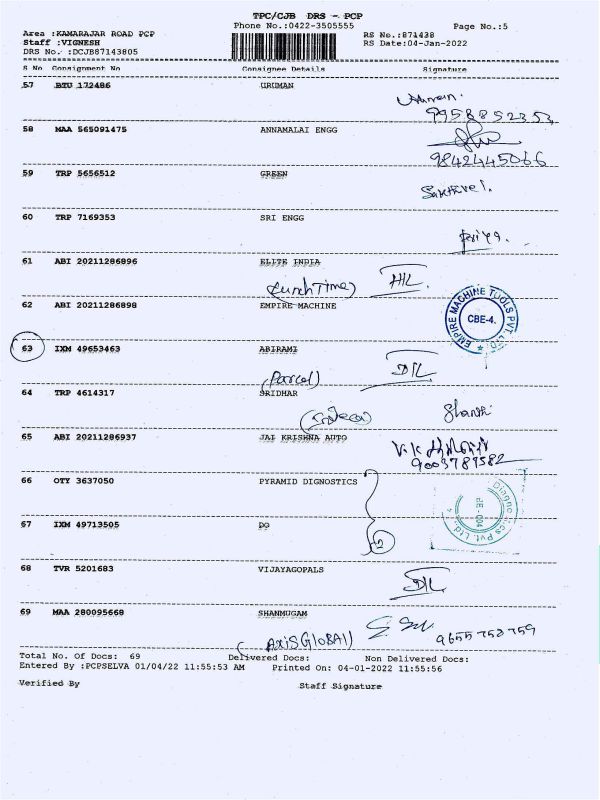 TPC/CJB DRS - PCP
Phone No.:0422-3505555 Page No.:5
Area :KAMARAJAR ROAD PCP RS No.:871438
Staff :VIGNESH RS Date:04-Jan-2022
DRS No. :DCJB87143805
S No Consignment No Consignee Details Signature
57 BTU 172486 URUMAN
58 MAA 565091475 ANNAMALAI ENGG
9842445066
59 TRP 5656512 GREEN
Sakthivel.
60 TRP 7169353 SRI ENGG
priya.
61 ABI 20211286896 ELITE INDIA
(Lunch Time)
62 ABI 20211286898 EMPIRE MACHINE
EMPIRE MACHINE TOOLS PVT. LTD.
CBE-4.
63 IXM 49653463 ABIRAMI
(Parcel)
64 TRP 4614317 SRIDHAR
Shanthi
65 ABI 20211286937 JAI KRISHNA AUTO
9003789582
66 OTY 3637050 PYRAMID DIGNOSTICS
67 IXM 49713505 DO
2
68 TVR 5201683 VIJAYAGOPALS
69 MAA 280095668 SHANMUGAM
(Axis Global) 9655758759
Total No. Of Docs: 69 Delivered Docs: Non Delivered Docs:
Entered By :PCPSELVA 01/04/22 11:55:53 AM Printed On: 04-01-2022 11:55:56
Verified By Staff Signature